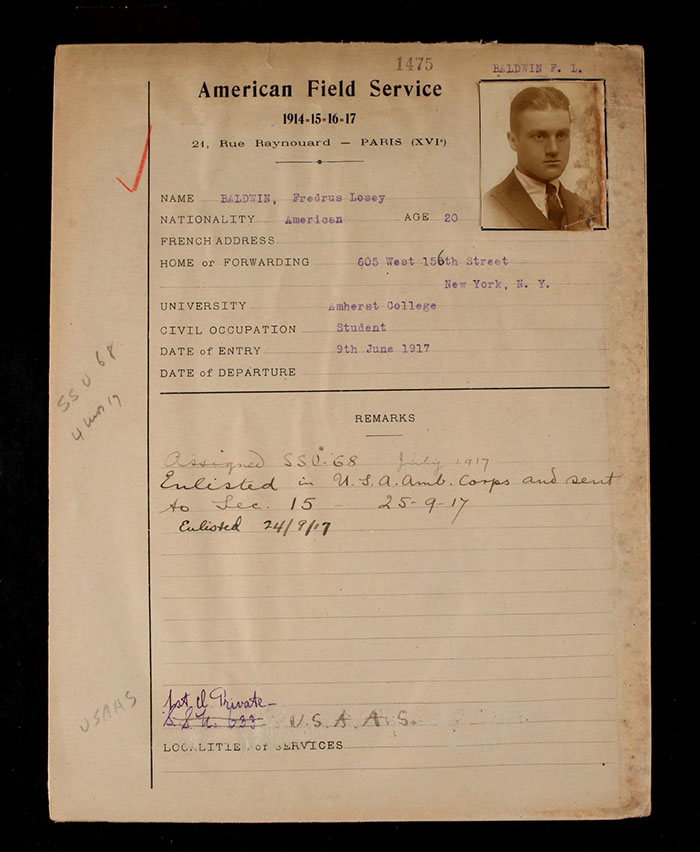 1475
BALDWIN F. L.
American Field Service
1914-15-16-17
21, Rue Raynouard — PARIS (XVIe)
NAME BALDWIN, Fredrus Losey
NATIONALITY American AGE 20
FRENCH ADDRESS
HOME or FORWARDING 605 West 156th Street
New York, N. Y.
UNIVERSITY Amherst College
CIVIL OCCUPATION Student
DATE of ENTRY 9th June 1917
DATE of DEPARTURE
SSU 68
4
REMARKS
Assigned SSU. 68 July 1917
Enlisted in U.S.A. Amb. Corps and sent
to Sec. 15 - 25-9-17
Enlisted 24/9/17
USAAS
1st Cl Private
S.S.U. 633 U.S.A.A.S.
LOCALITIE of SERVICES